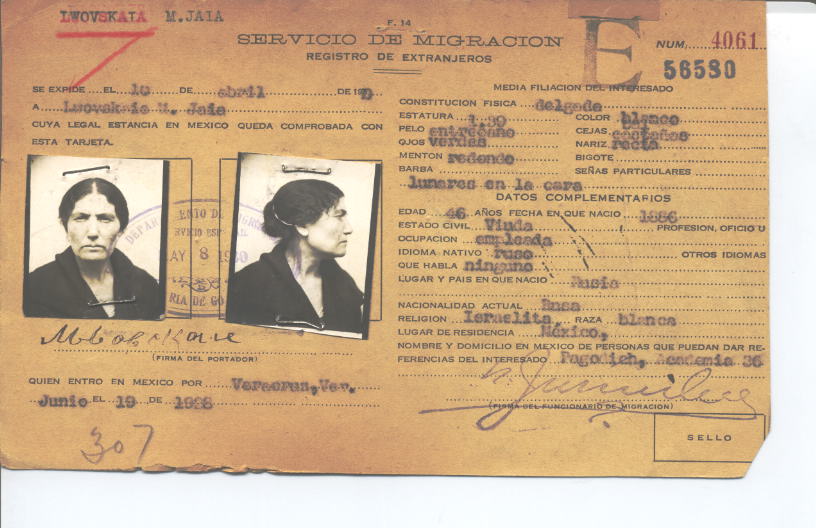 LWOVSKAIA M.JAIA
F. 14
SERVICIO DE MIGRACION
REGISTRO DE EXTRANJEROS
E
NUM. 4061
56530
SE EXPIDE EL 10 DE abril DE 19
A Lwovskaia M. Jaia
CUYA LEGAL ESTANCIA EN MEXICO QUEDA COMPROBADA CON
ESTA TARJETA.
MAY 8 1930
(FIRMA DEL PORTADOR)
QUIEN ENTRO EN MEXICO POR Veracruz, Ver.
Junio EL 19 DE 1928
307
MEDIA FILIACION DEL INTERESADO
CONSTITUCION FISICA delgada
ESTATURA 1.39 COLOR blanco
PELO entrecano CEJAS castañas
OJOS verdes NARIZ recta
MENTON redondo BIGOTE
BARBA SEÑAS PARTICULARES
lunares en la cara
DATOS COMPLEMENTARIOS
EDAD 46 AÑOS FECHA EN QUE NACIO 1886
ESTADO CIVIL Viuda PROFESION, OFICIO U
OCUPACION empleada
IDIOMA NATIVO ruso OTROS IDIOMAS
QUE HABLA ninguno
LUGAR Y PAIS EN QUE NACIO Rusia
NACIONALIDAD ACTUAL Rusa
RELIGION Israelita RAZA blanca
LUGAR DE RESIDENCIA México,
NOMBRE Y DOMICILIO EN MEXICO DE PERSONAS QUE PUEDAN DAR RE-
FERENCIAS DEL INTERESADO Pagodich, Academia 36
(FIRMA DEL FUNCIONARIO DE MIGRACION)
SELLO